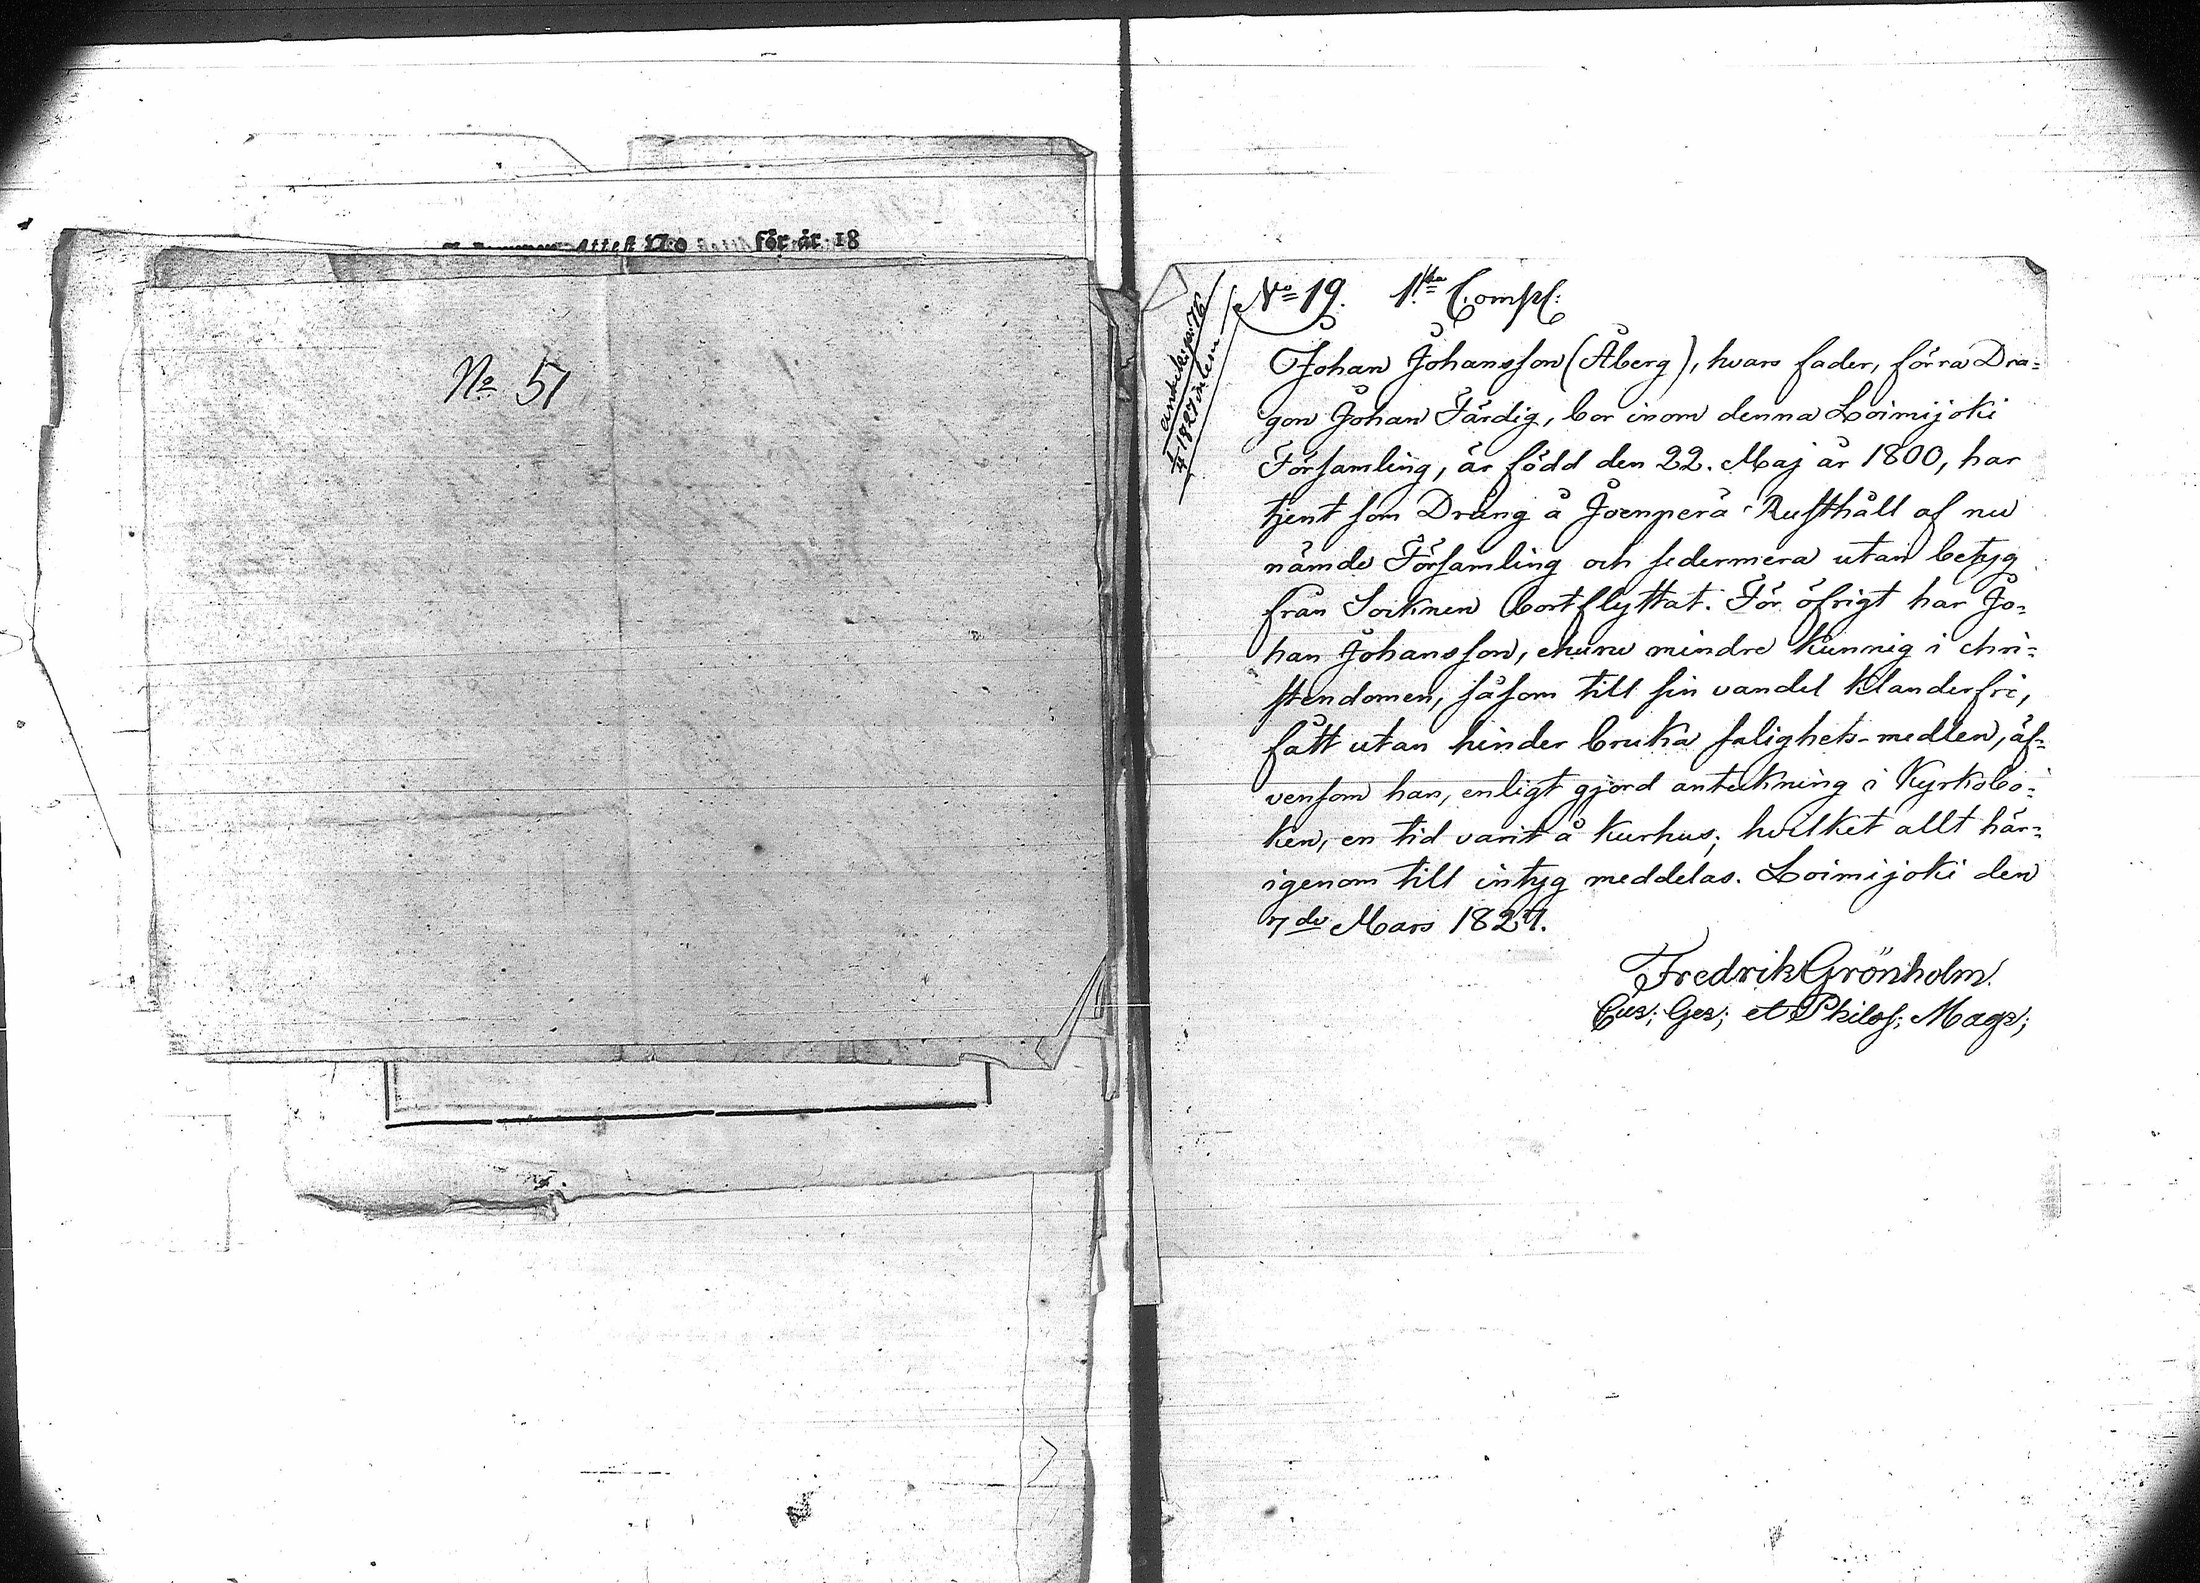 Attest N:o för år 18
No 51
No 19. 1:sta Comp:
1/4 1827 inlem
Johan Johansson (Åberg), hvars fader, förra Dra=
gon Johan Färdig, bor inom denna Loimijoki
Församling, är född den 22. Maj år 1800, har
tjent som Dräng å Joenperä Rusthåll af nu
nämde Församling och sedermera utan betyg
från Socknen bortflyttat. För öfrigt har Jo=
han Johansson, ehuru mindre kunnig i chri=
stendomen, såsom till sin vandel klanderfri,
fått utan hinder bruka salighets-medlen, äf=
vensom han, enligt gjord anteckning i Kyrkobo=
ken, en tid varit å kurhus; hvilket allt här=
igenom till intyg meddelas. Loimijoki den
7de Mars 1827.
Fredrik Grönholm.
et Philos; Mags;